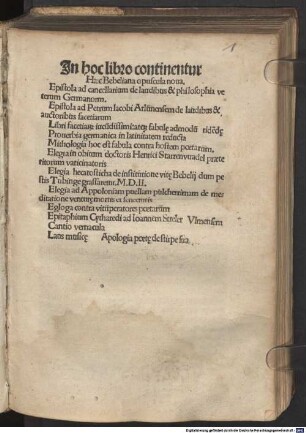 In hoc libro continentur
Hæc Bebeliana opuscula noua.
Epistola ad cancellarium de laudibus & philosophia ve
terum Germanorum.
Epistola ad Petrum Iacobi Arlunensem de laudibus &
auctoribus facetiarum
Libri facetiarū iucūdissimi atqȝ fabulę admodū ridēdę
Prouerbia germanica in latinitatem reducta
Mithologia hoc est fabula contra hostem poetarum.
Elegia in obitum doctoris Henrici
ritorium vaticinatoris
Elegia hecatosticha de institutione vitę Bebelij dum pe
stis Tubingę grassaretur. M.D.II.
Elegia ad Appoloniam puellam pulcherrimam de me
ditatione venturę mortis et senectutis
Egloga contra vituperatores poetarum
Epitaphium Cytharedi ad Ioannem Streler Vlmensem
Cantio vernacula
Laus musicę Apologia poetę de stirpe sua.